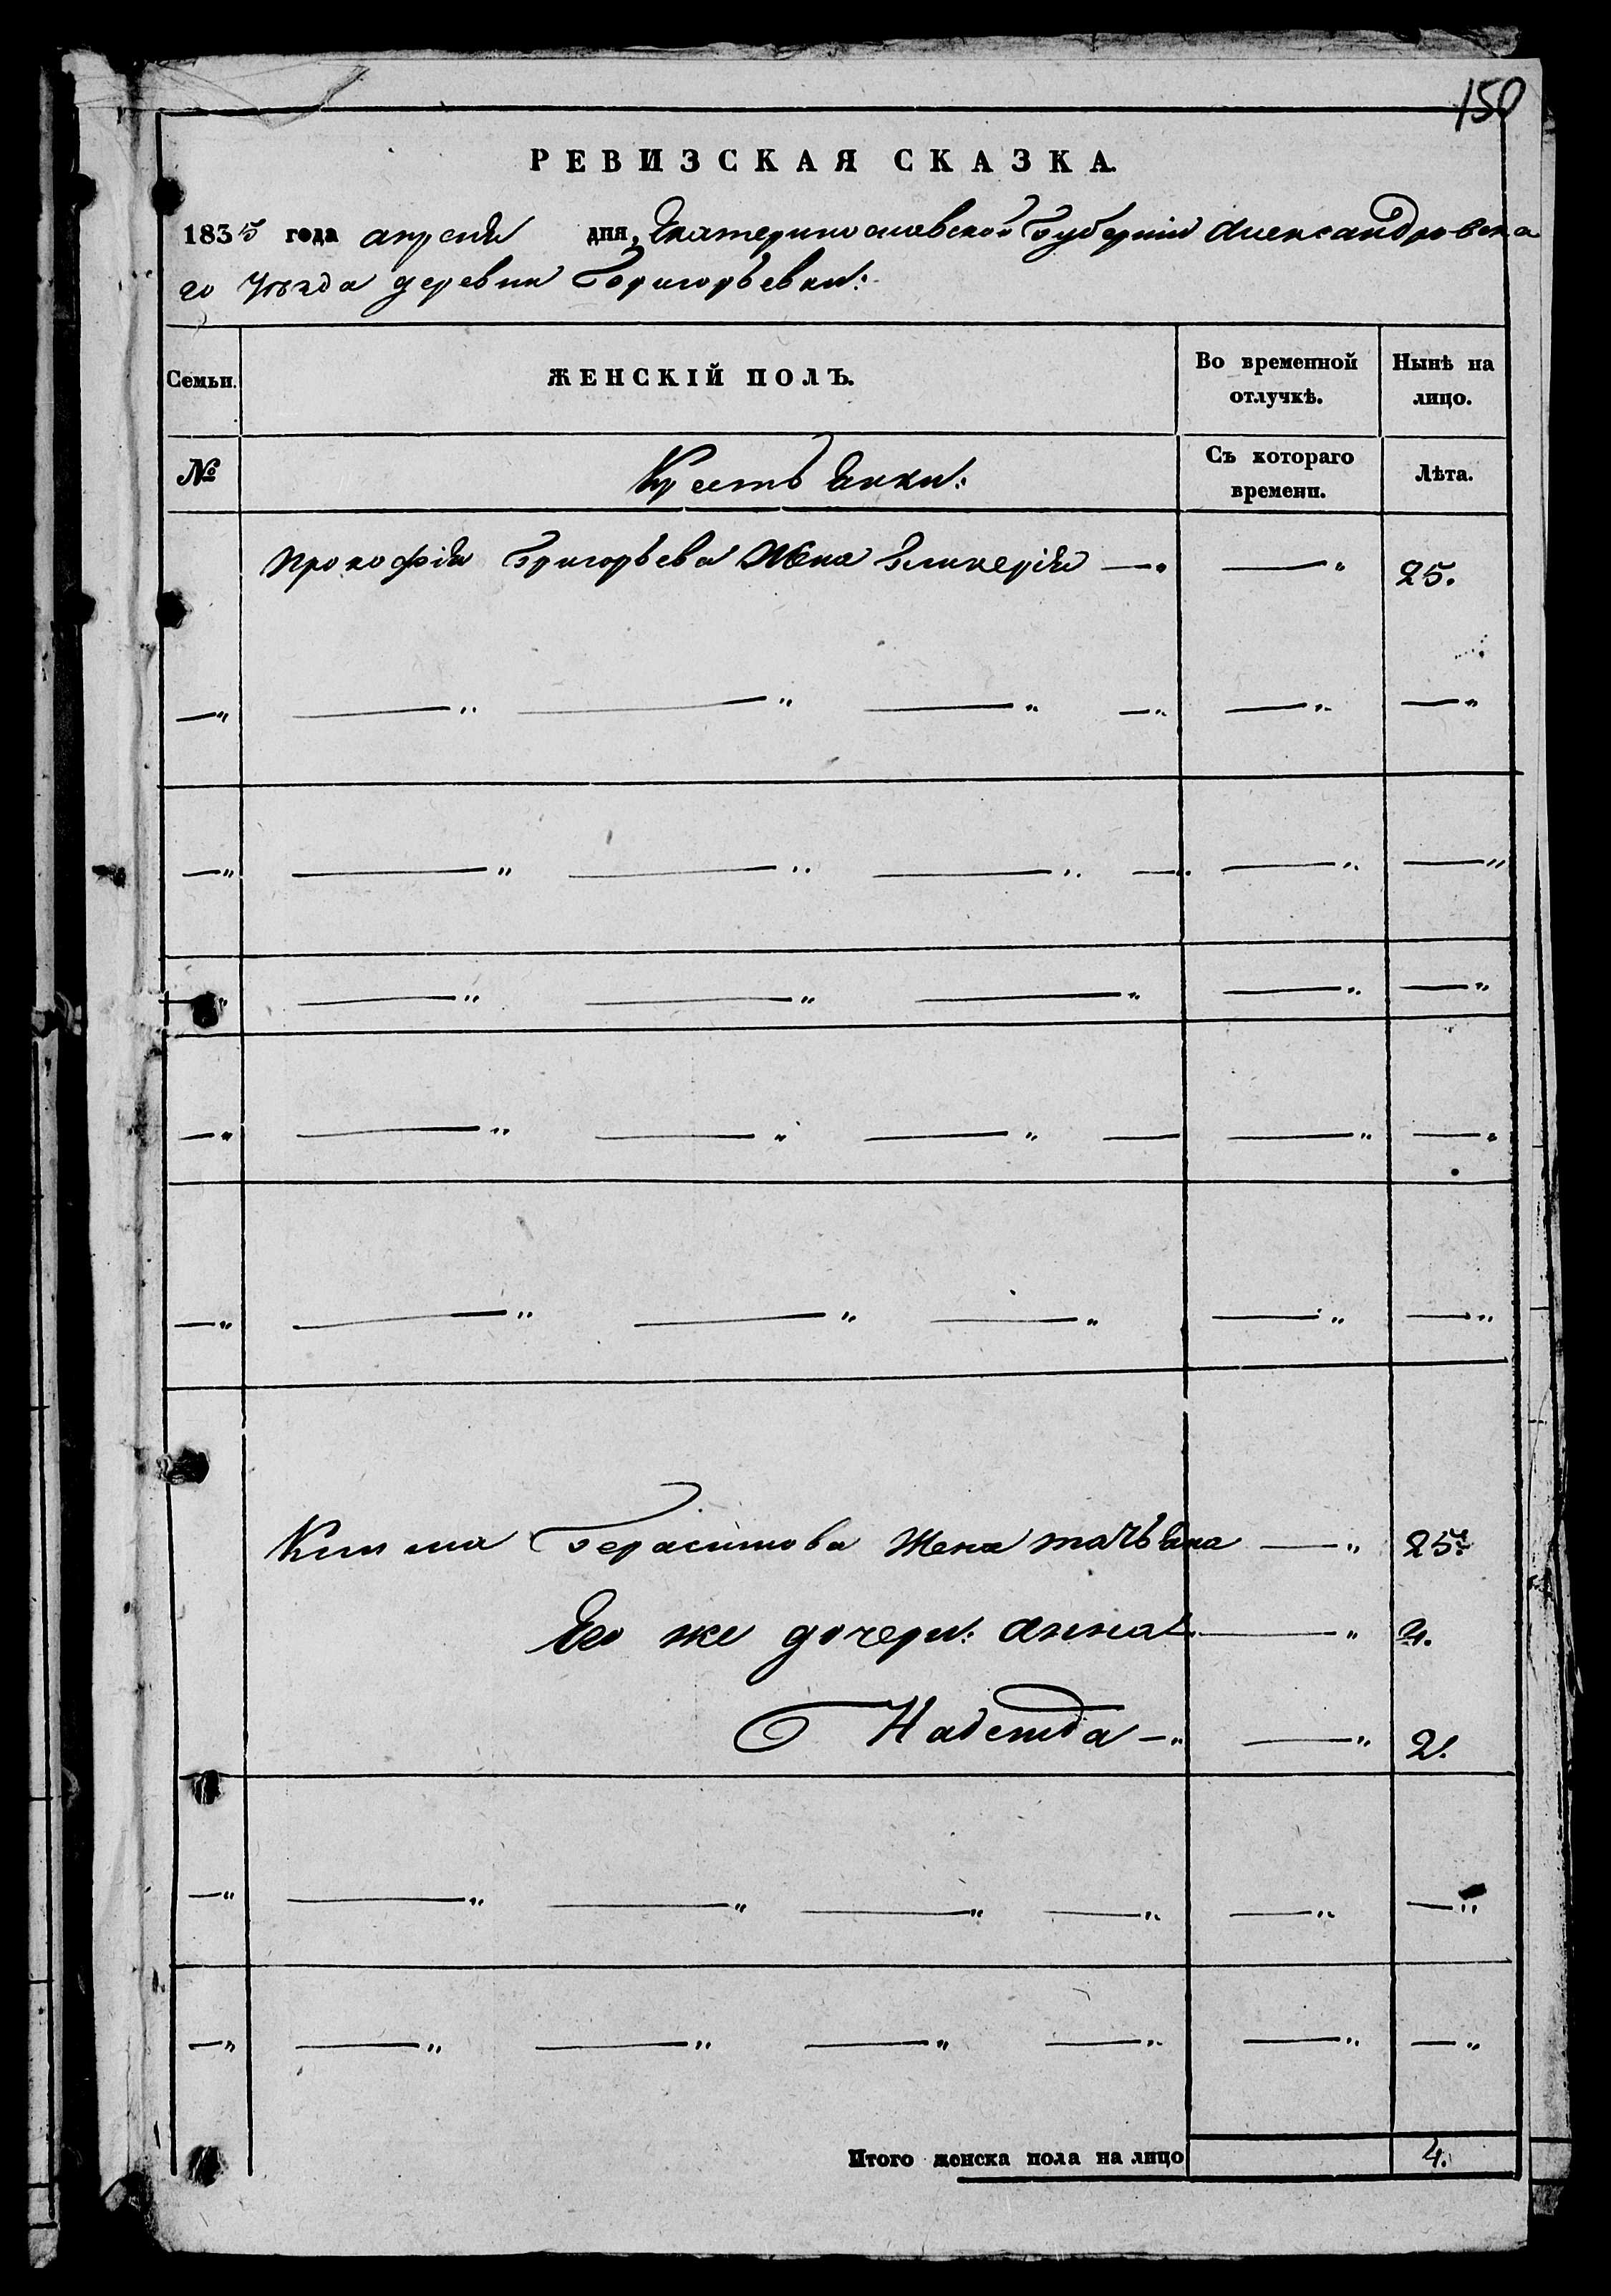 150
РЕВИЗСКАЯ СКАЗКА.
1835 года апреля дня, Екатеринославской Губернiи Александровска
го Уѣзда деревни Григорьевки:
Семьи.
ЖЕНСКІЙ ПОЛЪ.
Во временной отлучкѣ.
Нынѣ на лицо.
№
Крестьянки:
Съ котораго времени.
Лѣта.
Прокофiя Григорьева Жена Гликерiя —„ —„ 25.
—„ —„ —„ —„ —„ —„ —„
—„ —„ —„ —„ —„ —„ —„
—„ —„ —„ —„ —„ —„
—„ —„ —„ —„ — —„ —„
—„ —„ —„ —„ —„ —„
Герасимова Жена татьяна —„ 25.
Его же дочери: анна —„
Надежда —„ —„ 2.
—„ —„ —„ —„ —„ —„ —„
—„ —„ —„ —„ —„ —„ —„
Итого женска пола на лицо 4.